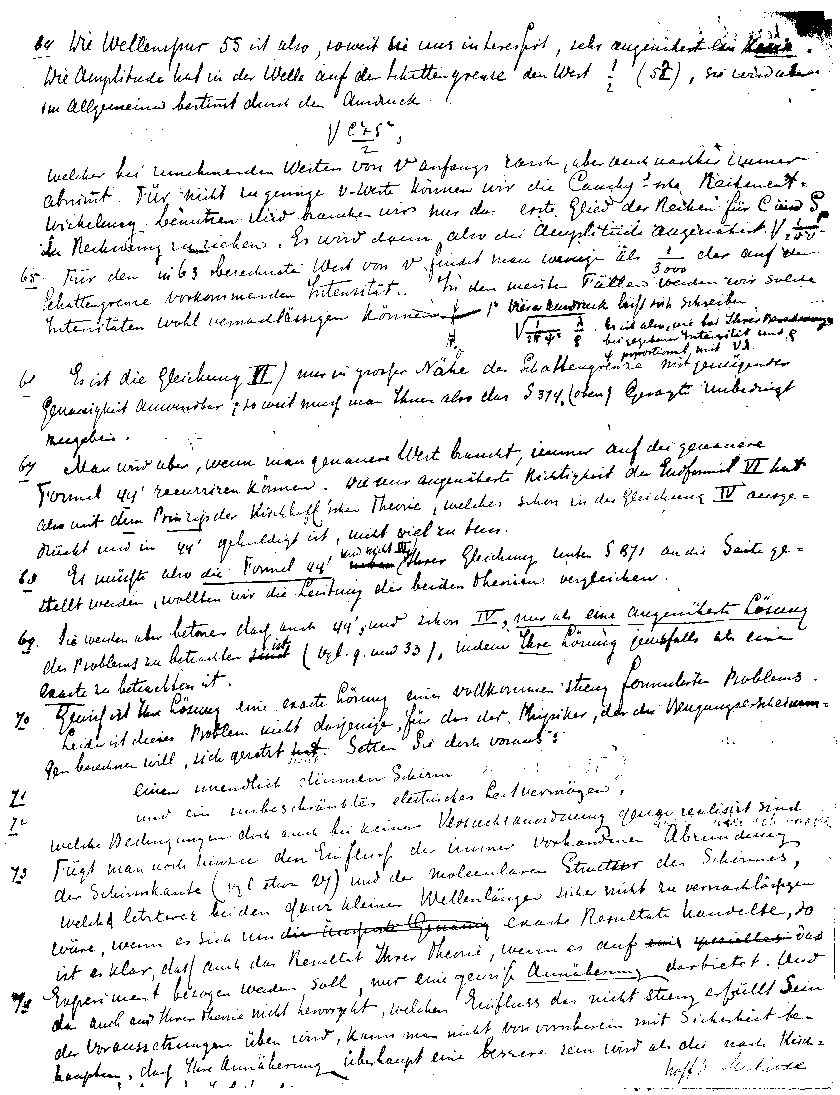 64 Die Wellenspur 55 ist also, soweit sie uns interessirt, sehr angenähert ein Kreis.
Die Amplitude hat in der Welle auf der Schattengrenze den Wert 1/2 (52), sie wird aber
im Allgemeinen bestimt durch den Ausdruck
√ C²+S² / 2 ,
welcher bei zunehmenden Werten von v anfangs rasch, aber auch nachher immer
abnimt. Für nicht zu geringe v-Werte können wir die Cauchy'sche Reihenent-
wickelung benützen und brauchen wir nur das erste Glied der Reihen für C und S
in Rechnung zu ziehen. Es wird dann also die Amplitude angenähert √ 1/2π²v²
65. Für den in 63 berechnete Wert von v findet man weniger als 1/3000 der auf der
Schattengrenze vorkommenden Intensität. In den meisten Fällen werden wir solche
Intensitäten wohl vernachlässigen können. Dieser Ausdruck läszt sich schreiben
Es ist also, wie bei Ihrer Berechnung
bei gegebener Intensität und ρ
φ proportional mit √λ.
Es ist die Gleichung VI) nur in groszer Nähe der Schattengrenze mit genügender
Genauigkeit anwendbar; so weit musz man Ihnen also das S 374 (oben) Gesagte unbedingt
zugeben.
67 Man wird aber, wenn man genauere Wert braucht, immer auf die genauere
Formel 44' recurriren können. Die nur angenäherte Richtigkeit der Endformel VI hat
also mit dem Prinzip der Kirchhoff'schen Theorie, welches schon in der Gleichung IV ausge-
drückt und in 44' gehuldigt ist, nicht viel zu tun.
68 Es müszte also die Formel 44' und nicht VI Ihrer Gleichung unten S 371 an die Seite ge-
stellt werden, wollten wir die Leistung der beiden Theorien vergleichen.
69. Sie werden aber betonen dasz auch 44', und schon IV, nur als eine angenäherte Lösung
des Problems zu betrachten ist (vgl. 9. und 33), indem Ihre Lösung jedenfalls als eine
exacte zu betrachten ist.
70 Gewisz ist Ihre Lösung eine exacte Lösung eines vollkommen streng formulirten Problems.
Leider ist dieses Problem nicht dasjenige, für das der Physiker, der die Beugungserscheinun-
gen berechnen will, sich gesetzt hat. Setzen Sie doch voraus:
71 einen unendlich dünnen Schirm
72 und ein unbeschränktes electrisches Leitvermögen,
welche Bedingungen doch auch bei keiner Versuchsanordnung genau realisirt sind
73 Fügt man noch hinzu den Einflusz der immer vorhandenen Abrundung
der Schirmkante (vgl oben 27) und der molecularen Structur des Schirmes,
welch letzterer bei den ganz kleinen Wellenlängen sicher nicht zu vernachlässigen
wäre, wenn es sich um exacte Resultate handelte, so
ist es klar, dasz auch das Resultat Ihrer Theorie, wenn es auf das
Experiment bezogen werden soll, nur eine gewisse Annäherung darbietet. Und
74 da auch aus Ihrer Theorie nicht hervorgeht, welchen Einfluss das nicht streng erfüllt Sein
der Voraussetzungen üben wird, kann man nicht von vornherein mit Sicherheit be-
haupten, dasz Ihre Annäherung überhaupt eine bessere sein wird als die nach Kirch-
hoff's Methode